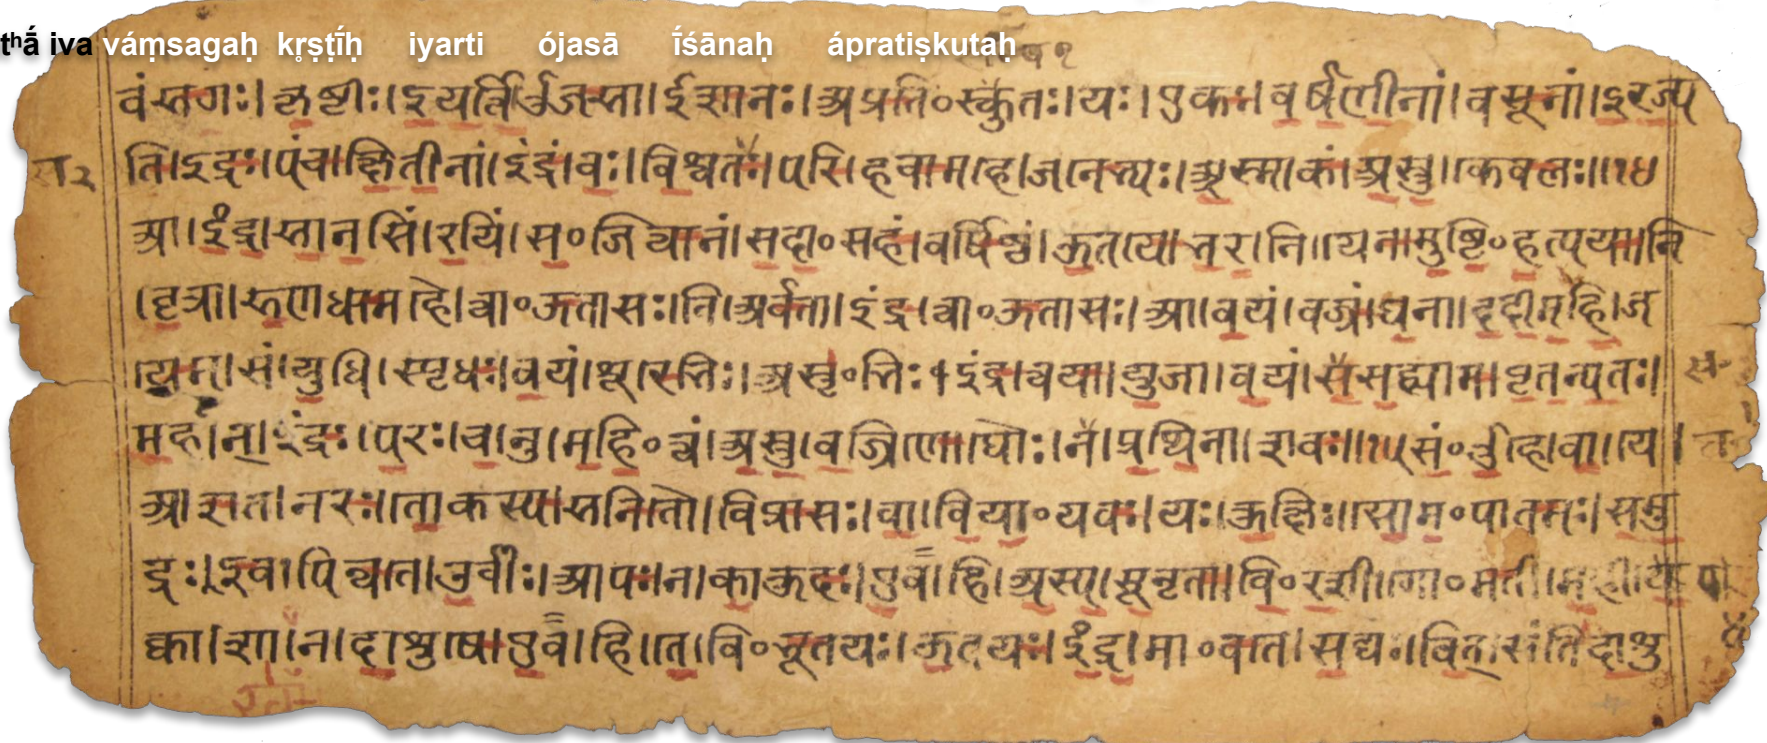 tʰā́ iva váṃsagaḥ kr̥ṣṭī́ḥ iyarti ójasā ī́śānaḥ ápratiṣkutaḥ
वंसगः। कृष्टीः। इयर्ति। ओजसा। ईशानः। अप्रति॰स्कुतः। यः। एकः। चर्षणीनां। वसूनां। इरज्य
ति। इंद्रः। पंच। क्षितीनां। इंद्रं। वः। विश्वतः। परि। हवामहे। जनेभ्यः। अस्माकं। अस्तु। केवलः॥१४
आ। इंद्र। सानसिं। रयिं। स॰जित्वानं। सदा॰सहं। वर्षिष्ठं। ऊतये। भर। नि। येन। मुष्टि॰हत्यया। नि
। वृत्रा। रुणधामहै। त्वा॰ऊतासः। नि। अर्वता। इंद्र। त्वा॰ऊतासः। आ। वयं। वज्रं। घना। ददीमहि। ज
येम। सं। युधि। स्पृधः। वयं। शूरेभिः। अस्तृ॰भिः। इंद्र। त्वया। युजा। वयं। ससह्याम। पृतन्यतः।
महान्। इंद्रः। परः। च। नु। महि॰त्वं। अस्तु। वज्रिणे। द्यौः। न। प्रथिना। शवः॥१५ सं॰ओहे। वा। ये।
आशत। नरः। तोकस्य। सनितौ। विप्रासः। वा। धिया॰यवः। यः। कुक्षिः। सोम॰पातमः। समु
द्रः। इव। पिन्वते। उर्वीः। आपः। न। काकुदः। एव। हि। अस्य। सूनृता। वि॰रप्शी। गो॰मती। मही।
पक्वा। शाखा। न। दाशुषे। एव। हि। ते। वि॰भूतयः। ऊतयः। इंद्र। मा॰वते। सद्यः। चित्। संति। दाशु